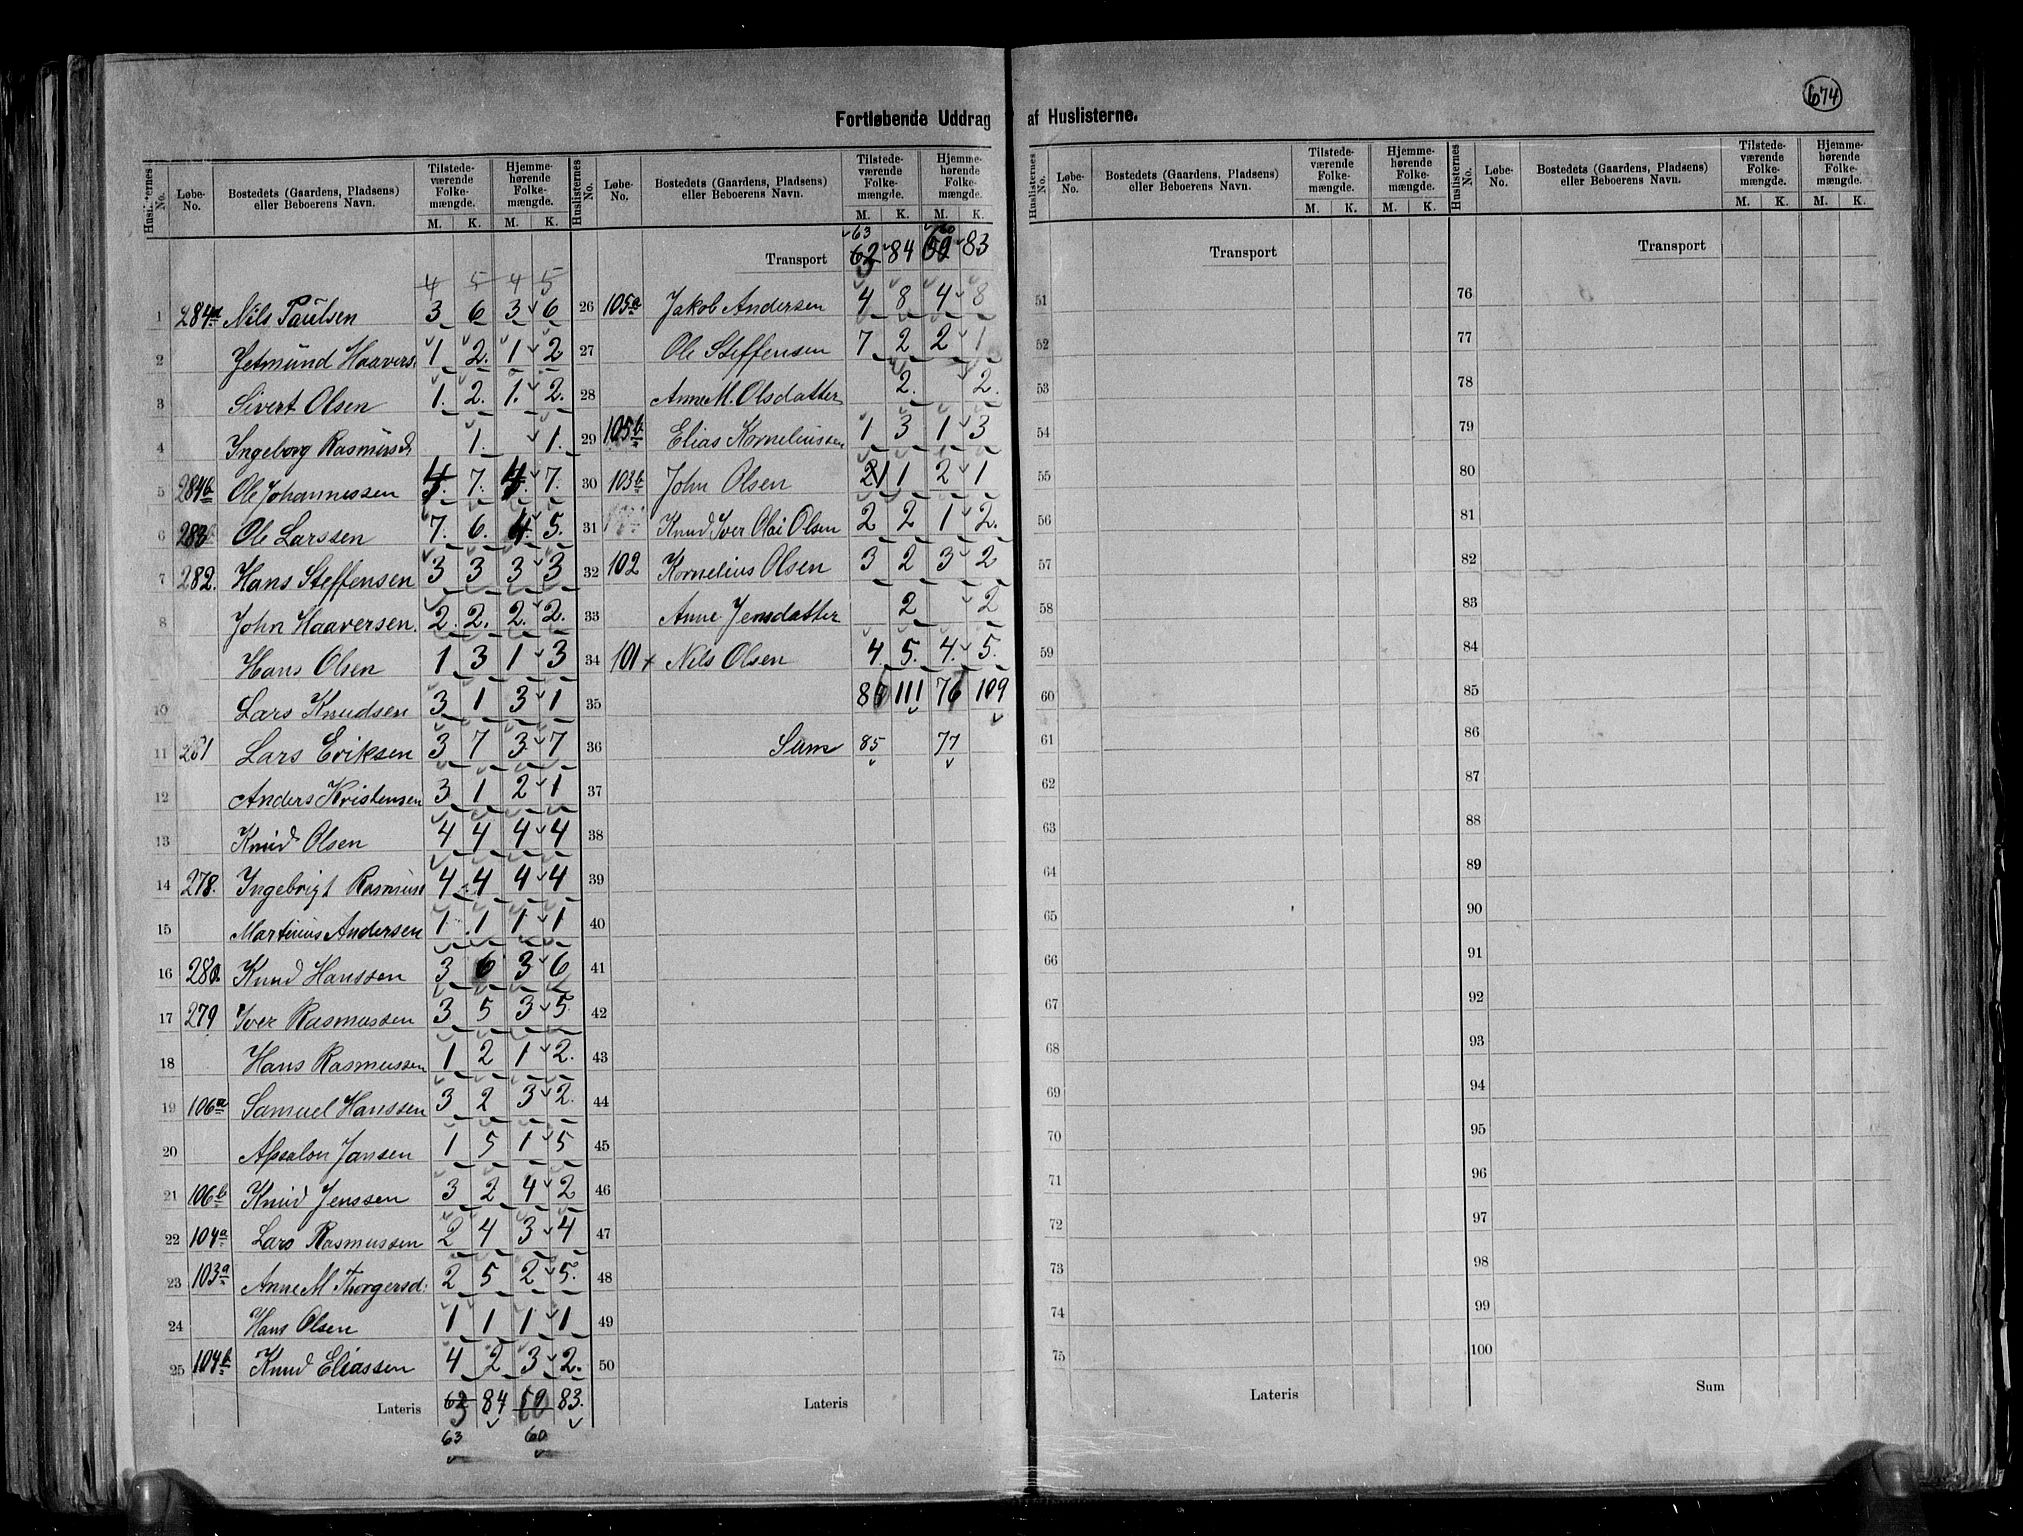 674
Fortløbende Uddrag af Huslisterne.
Huslisternes No. Løbe-No. Bostedets (Gaardens, Pladsens) eller Beboerens Navn. Tilstedeværende Folkemængde. M. K. Hjemmehørende Folkemængde. M. K.
4 5 4 5
1 284a Nils Paulsen 3 6 3 6
2 Jetmund Haavers. 1 2 1 2
3 Sivert Olsen 1 2 1 2
4 Ingeborg Rasmusd 1 1
5 284b Ole Johannessen 4 7 4 7
6 283 Ole Larssen 7 6 4 5
7 282. Hans Steffensen 3 3 3 3
8 John Haaversen 2 2 2 2
Hans Olsen 1 3 1 3
10 Lars Knudsen 3 1 3 1
11 281 Lars Eriksen 3 7 3 7
12 Anders Kristensen 3 1 2 1
13 Knud Olsen 4 4 4 4
14 278. Ingebrigt Rasmuss 4 4 4 4
15 Martinus Andersen 1 1 1 1
16 280. Knud Hanssen 3 6 3 6
17 279 Iver Rasmussen 3 5 3 5
18 Hans Rasmussen 1 2 1 2
19 106a Samuel Hanssen 3 2 3 2
20 Absalon Jansen 1 5 1 5
21 106b Knud Jenssen 3 2 4 2
22 104a Lars Rasmussen 2 4 3 4
23 103a Anne M Thorgersd: 2 5 2 5
24 Hans Olsen 1 1 1 1
25 104b Knud Eliassen 4 2 3 2
Lateris 62 84 83.
63 60
Huslisternes No. Løbe-No. Bostedets (Gaardens, Pladsens) eller Beboerens Navn. Tilstedeværende Folkemængde. M. K. Hjemmehørende Folkemængde. M. K.
63 60
Transport 62 84 59 83
26 105a Jakob Andersen 4 8 4 8
27 Ole Steffensen 7 2 2 1
28 Anne M. Olsdatter 2 2
29 105b Elias Korneliussen 1 3 1 3
30 103b John Olsen 2 1 2 1
31 Knud Iver Olai Olsen 2 2 1 2
32 102 Kornelius Olsen 3 2 3 2
33 Anne Jensdatter 2 2
34 101 x Nils Olsen 4 5 4 5
35 86 111 76 109
36 Sum 85 77
37
38
39
40
41
42
43
44
45
46
47
48
49
50
Lateris
Huslisternes No. Løbe-No. Bostedets (Gaardens, Pladsens) eller Beboerens Navn. Tilstedeværende Folkemængde. M. K. Hjemmehørende Folkemængde. M. K.
Transport
51
52
53
54
55
56
57
58
59
60
61
62
63
64
65
66
67
68
69
70
71
72
73
74
75
Lateris
Huslisternes No. Løbe-No. Bostedets (Gaardens, Pladsens) eller Beboerens Navn. Tilstedeværende Folkemængde. M. K. Hjemmehørende Folkemængde. M. K.
Transport
76
77
78
79
80
81
82
83
84
85
86
87
88
89
90
91
92
93
94
95
96
97
98
99
100
Sum